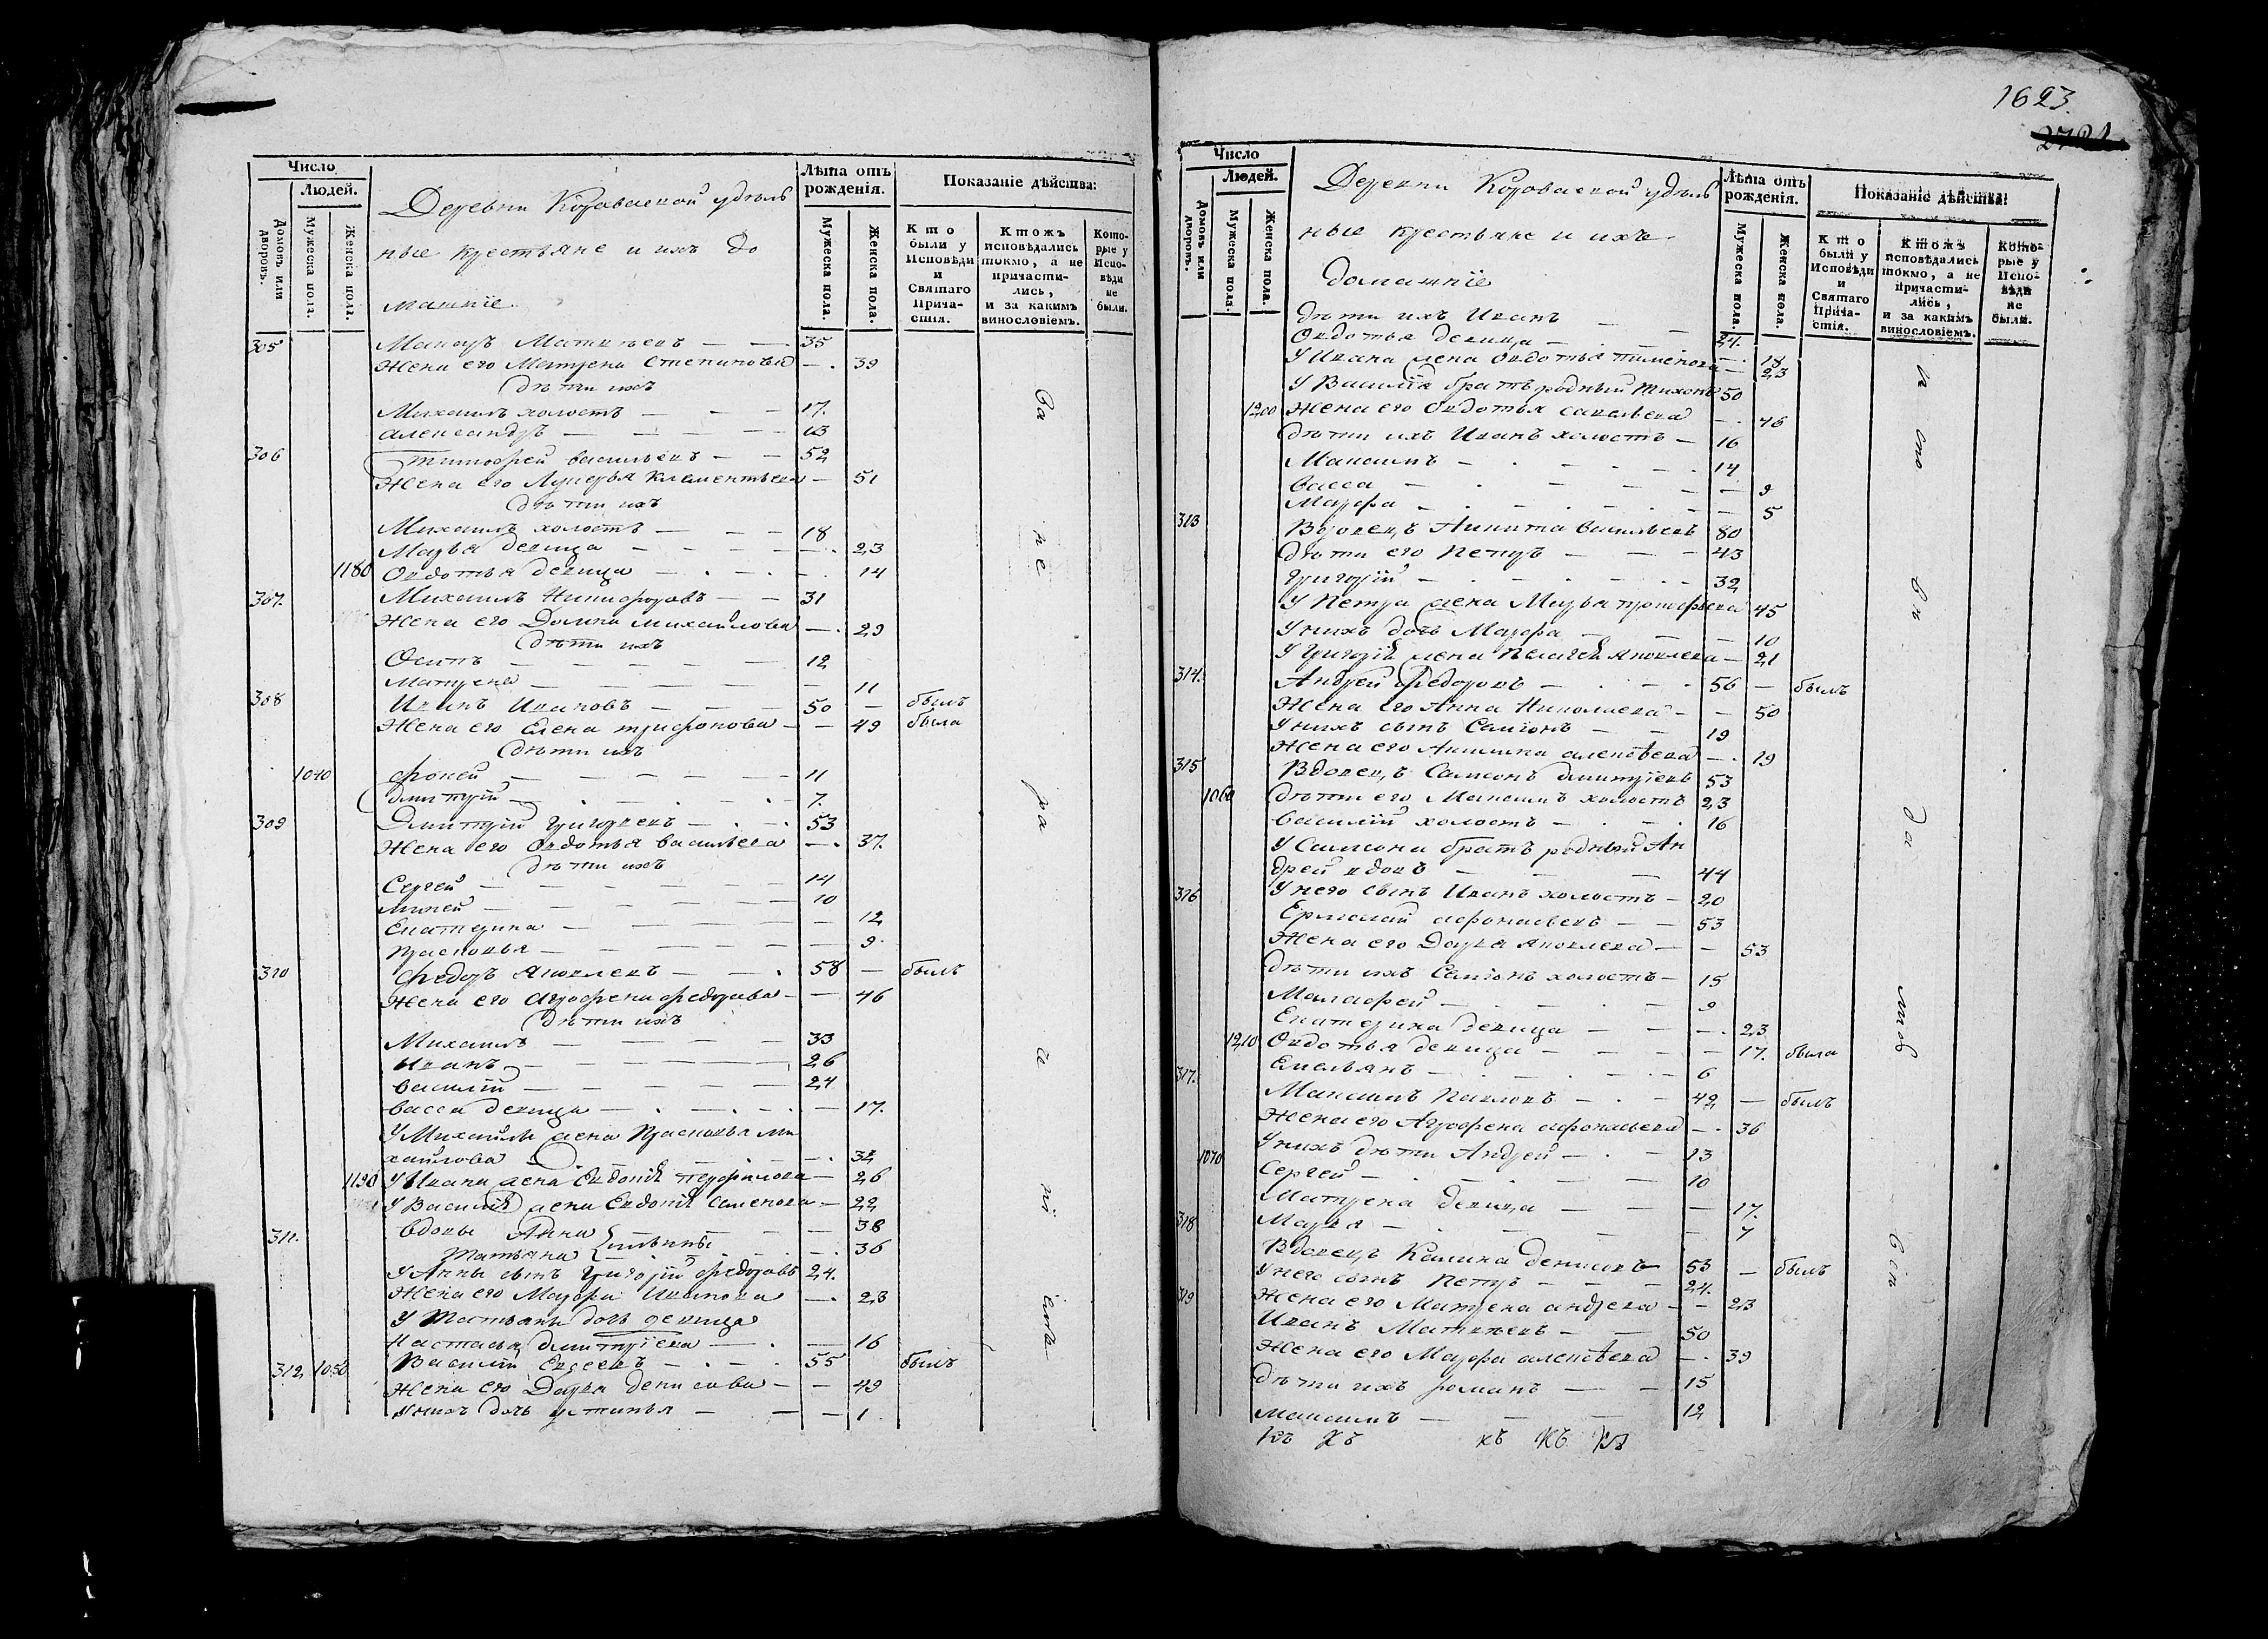 Число
Людей.
Домовъ или дворовъ.
Мужеска пола.
Женска пола.
Деревни Короваевой удѣль
ные крестьяне и ихъ до
машніе
Лѣта отъ рожденія.
Мужеска пола.
Женска пола.
Показаніе дѣйства:
Кто были у Исповѣди и Святаго Причастія.
Ктожъ исповѣдались токмо, а не причастились, и за какимъ винословіемъ.
Которые у Исповѣди не были.
305 Матвеевъ — — 35
Жена его Матрена Степанова — 39
дѣти ихъ
Михаилъ холостъ — — — 17.
александръ — — — — 13
306 Тимофей васильевъ — — 52
Жена его Лукерья Климентьева — 51
дѣти ихъ
Михаилъ холостъ — — — 18
Марья девица — — — — 23
1180 Овдотья девица — — — 14
307. Михаилъ Никифоровъ — — 31
Жена его Домна михайлова — 29
дѣти ихъ
Осипъ — — — — — 12
Матрена — — — — — 11
308 Иванъ Ивановъ — — — 50 — былъ
Жена его Елена трифонова — — 49 была
дѣти ихъ
1040 — — — — — 11
дмитрій — — — — 7.
309 Дмитрій Григорьевъ — — 53
Жена его Овдотья васильева — 37.
дѣти ихъ
Сергей — — — — — 14
— — — — — 10
Екатерина — — — — 12
Прасковья — — — — — 9
310 Федоръ Яковлевъ — — 58 — былъ
Жена его Агрофена федорова — — 46
дѣти ихъ
Михаилъ — — — — 33
Иванъ — — — — — 26
василій — — — — — 24
васса девица — — — — 17.
У Михаила жена Прасковья ми
хайлова — — — — 32
1190 У Ивана жена Евдокія перфилова — 26
У Василія жена Евдокія Семенова — 22
311. вдовы Анна — — — 38
Татьяна — — — 36
У Анны сынъ Григорій федоровъ 24.
Жена его Марфа Иванова — 23
У Татьяны дочь девица
Настасья дмитріева — — 16
312. 1050 Василій Евсеевъ — — — 55 былъ
Жена его Дарья денисова — — 49
У нихъ дочь устинья — — — 1
За не ра ѣ ні емъ
1623
Число
Людей.
Домовъ или дворовъ.
Мужеска пола.
Женска пола.
Деревни Короваевой удѣль
ные крестьяне и ихъ
домашніе
Лѣта отъ рожденія.
Мужеска пола.
Женска пола.
Показаніе дѣйства:
Кто были у Исповѣди и Святаго Причастія.
Ктожъ исповѣдались токмо, а не причастились, и за какимъ винословіемъ.
Которые у Исповѣди не были.
дѣти ихъ Иванъ — — 24.
Овдотья девица — — — 18
У Ивана жена Овдотья пименова — 23
У Василія братъ родный Тихонъ 50
1200 Жена его Овдотья савельева — 46
дѣти ихъ Иванъ холостъ — 16
Максимъ — — — — 14
васса — — — — — 9
Марфа — — — — — 5
313 Вдовецъ Никита васильевъ 80
дѣти его Петръ — — — 43
Григорій — — — — 32
У Петра жена Марья прокофьева 45
У нихъ дочь Марфа — — — 10
У Григорія жена Пелагея Яковлева — 21
314. Андрей Федоровъ — — — 56 — былъ
Жена его Анна Николаева — — 50
У нихъ сынъ Семіонъ — — 19
Жена его Акилина алексѣева — 19
315 Вдовецъ Самсонъ дмитріевъ 53
1060 дѣти его Максимъ холостъ 23
василій холостъ — — — 16
У Самсона братъ родный Ан
дрей вдовъ — — — 44
У него сынъ Иванъ холостъ — 20
316 Ермолай афонасьевъ — — 53
Жена его Дарья яковлева — — 53
дѣти ихъ Семіонъ холостъ — 15
Малафей — — — — 9
Екатерина девица — — — 23
1210 Овдотья девица — — — 17. была
Емельянъ — — — — 6
317. Максимъ Павловъ — — — 42 — былъ
Жена его Агрофена афонасьева — 36
1070 У нихъ дѣти Андрей — — — 13
Сергей — — — — — 10
Матрена девица — — — 17.
Марья — — — — — 7
318 Вдовецъ денисовъ 53 — былъ
У него сынъ Петръ — — — 24.
Жена его Матрена андреева — — 23
319 Иванъ Матвеевъ — — 50
Жена его Марфа алексѣева — 39
дѣти ихъ романъ — — 15
максимъ — — — 12